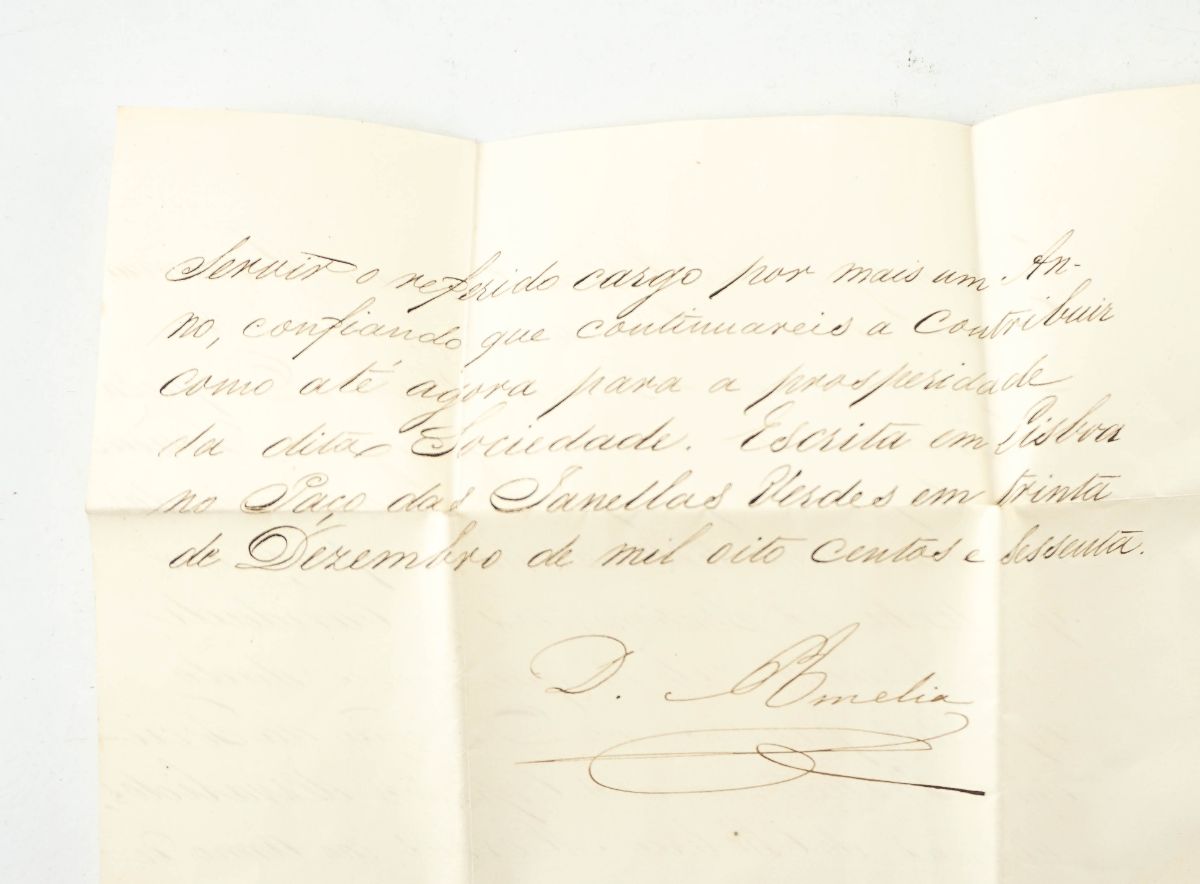 Servir o referido cargo por mais um An-
no, confiando que continuareis a Contribuir
como até agora para a prosperidade
da dita Sociedade. Escrita em Lisboa
no Paço das Janellas Verdes em trinta
de Dezembro de mil oito centos e sessenta.
D. Amelia